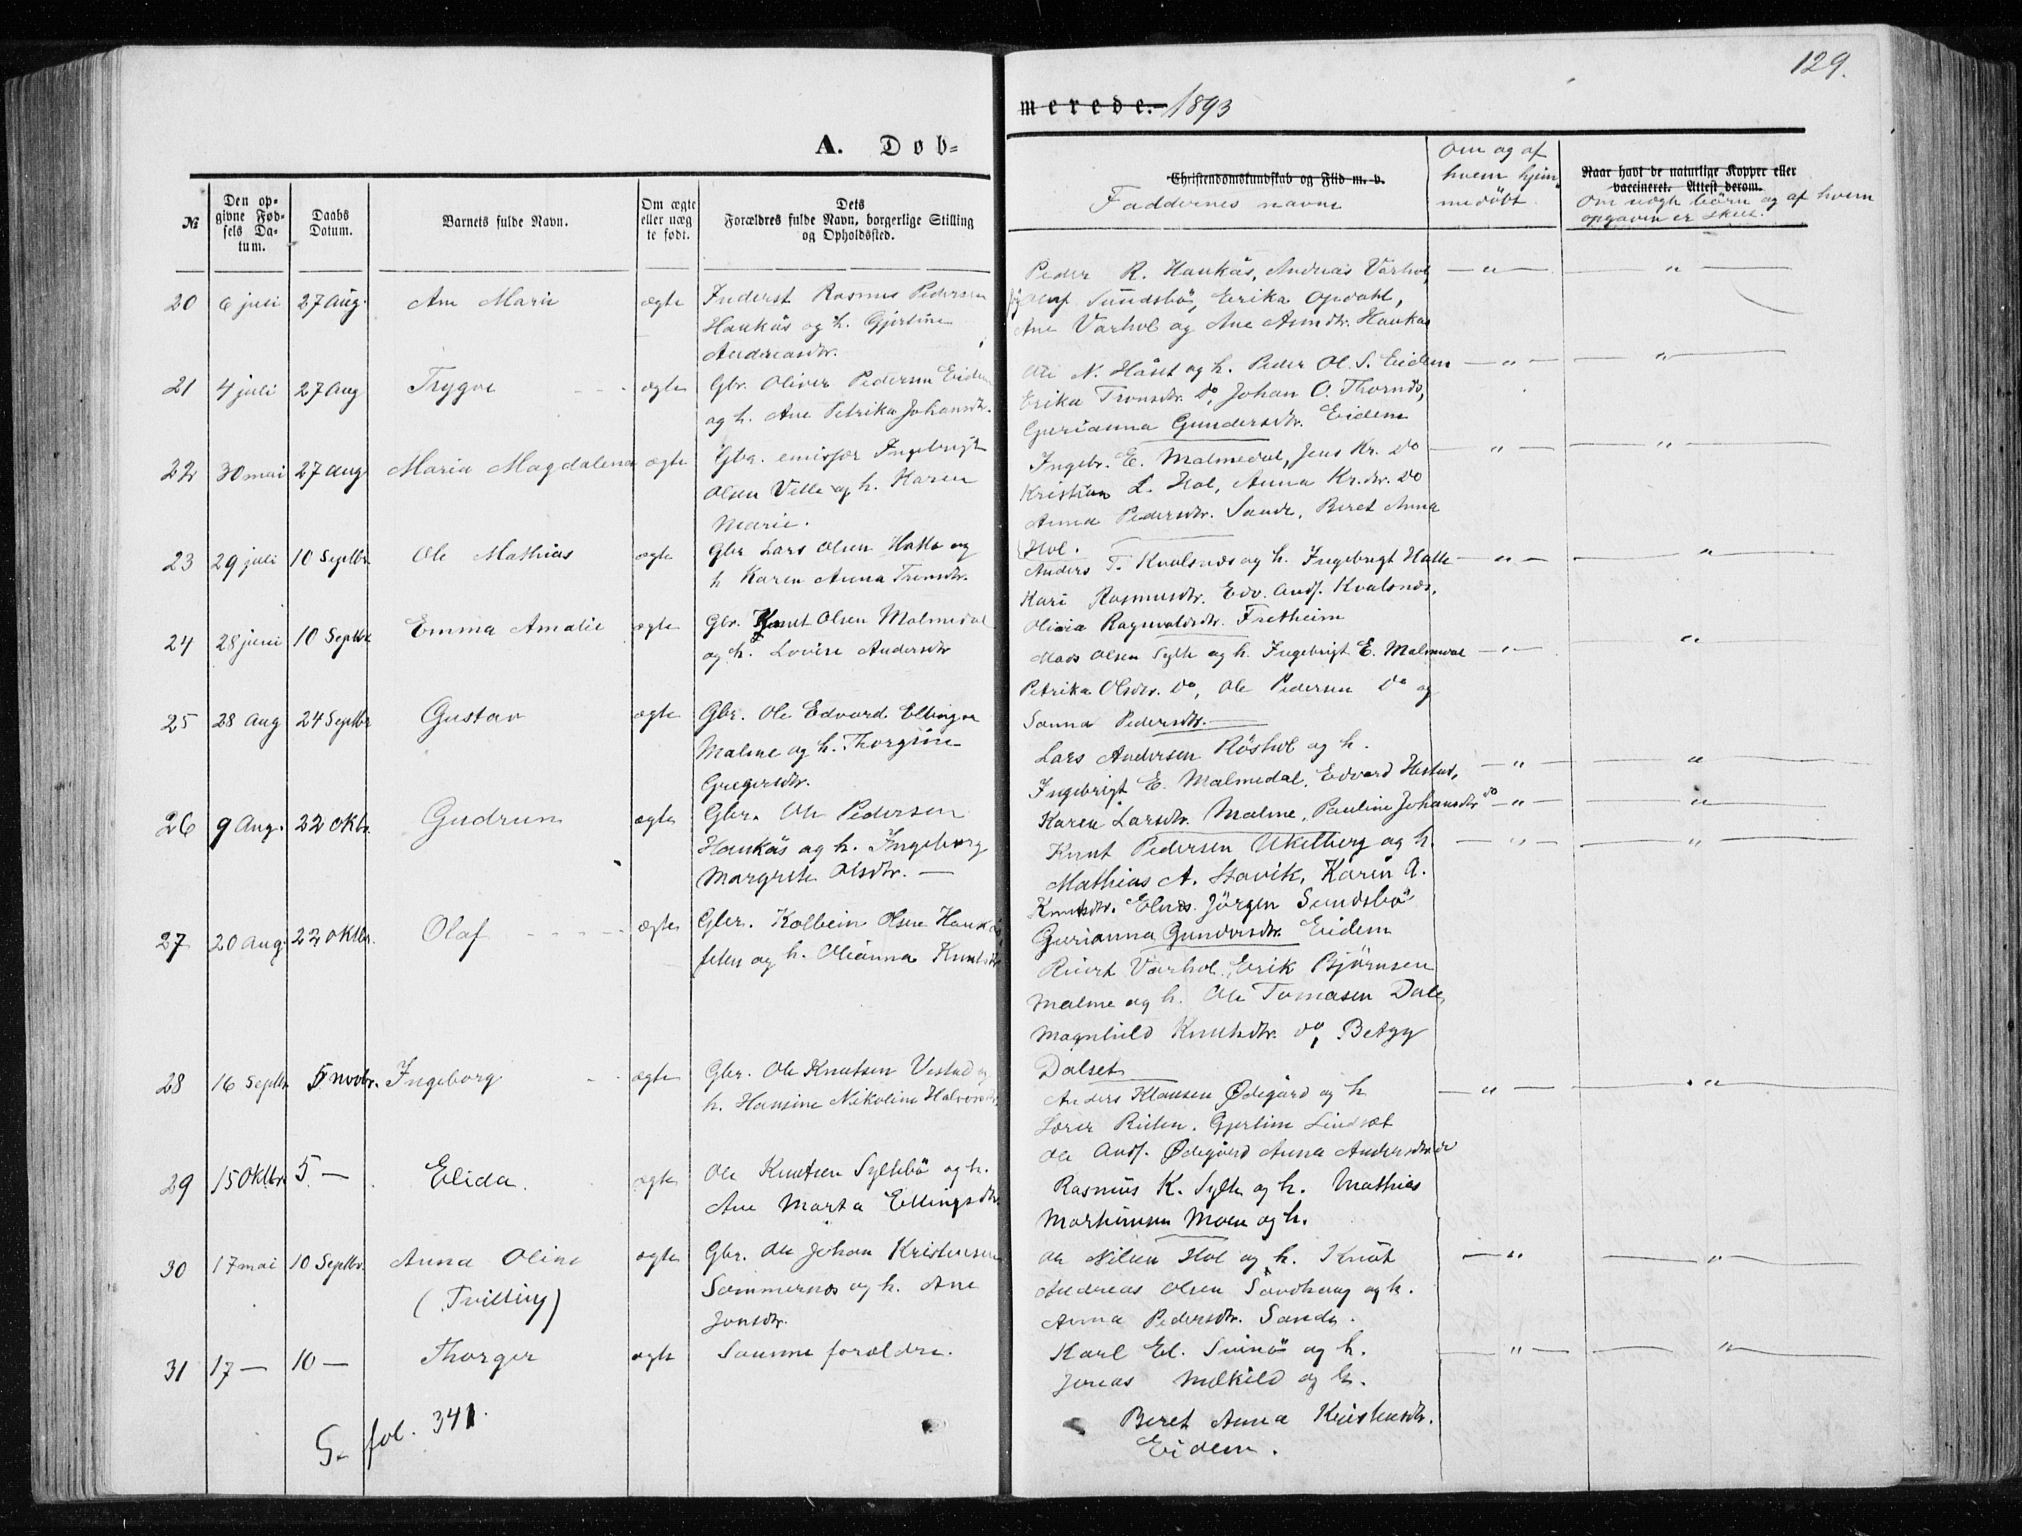 129.
merede. 1893
A. Dob-
№
Den op-
givne Fød-
sels Da-
tum.
Daabs
Datum.
Barnets fulde Navn.
Om ægte
eller uæg
te født.
Dets
Forældres fulde Navn, borgerlige Stilling
og Opholdssted.
Christendomskundskab og Flid m. v.
Faddernes navne
Om og af
hvem hjem
medøbt.
Naar havt de naturlige Kopper eller
vaccineret. Attest derom.
Om uægte børn og af hvem
opgaven er skeet.
20 6 juli 27 Aug. Ane Marie ægte Inderst Rasmus Pedersen
Haukås og h. Gjertine
Andreasdtr.
Peder R. Haukås, Andreas Varhol,
Olaf Sundsbö, Erika Opdahl,
Ane Varhol og Ane Asmdtr. Haukås
21 4 juli 27 Aug Trygve ægte Gbr. Oliver Pedersen Eidem
og h. Ane Petrika Johansdtr.
Ole N. Håset og h. Peder Ol. S. Eidem
Erika Tronsdtr. Do, Johan O. Thornæs,
Gurianna Gundersdtr. Eidem
22 30 mai 27 aug Maria Magdalena ægte Gbr. emissær Ingebrigt
Olsen Ville og h. Karen
Marie.
Ingebr. E. Malmedal, Jens Kr. Do
Kristian L. Hol, Anna Kr.dtr. Do
Anna Pedersdtr. Sande, Beret Anna
Hol.
23 29 juli 10 Septbr. Ole Mathias ægte Gbr Lars Olsen Hatle og
h Karen Anna Tronsdtr.
Anders T. Kvalsnæs og h. Ingebrigt Hatle
Kari Rasmusdtr. Edv. Ands. Kvalsnæs,
Olivia Ragnvaldsdtr. Fretheim
24 28 juni 10 Septbr Emma Amalie ægte Gbr. Knut Olsen Malmedal
og h. Lovise Andersdtr
Mads Olsen Sylte og h. Ingebrigt E. Malmedal
Petrika Olsdtr. Do, Ole Pedersen Do og
Sanna Pedersdtr.
25 28 Aug 24 Septbr Gustav ægte Gbr. Ole Edvard Ellingsen
Malme og h. Thorgine
Gregersdtr.
Lars Andersen Röshol og h.
Ingebrigt E. Malmedal, Edvard Hestad,
Karen Larsdtr. Malme, Pauline Johansdtr Do
26 9 Aug. 22 Oktbr. Gudrun ægte Gbr. Ole Pedersen
Haukås og h. Ingeborg
Margrete Olsdtr.
Knut Pedersen Ukelberg og h.
Mathias A. Stavik, Karen A.
Knutsdtr. Elnes. Jörgen Sundsbö
Gurianna Gundersdtr. Eidem
27 20 Aug. 22 Oktbr. Olaf ægte Gbr. Kolbein Olsen Haukås
og h. Olianna Knutsdtr
Varhol. Erik Bjørnsen
Malme og h. Ole Tomasen Dale,
Magnhild Knutsdtr. Do, Betzy
Dalset
28 16 Septbr 5 Novbr. Ingeborg ægte Gbr. Ole Knutsen Vestad og
h. Hansine Nikoline Halvorsdtr.
Anders Klausen Ødegård og h
Lærer Gjertine Lindset
Ole Ands. Ødegård Anna Andersdtr
29 15 Oktbr 5. — Elida. ægte Ole Knutsen Syltebö og h.
Ane Marta Ellingsdtr.
Rasmus K. Sylte og h. Mathias
Moen og h.
30 17 mai 10 Septbr. Anna Oline ægte Gbr. Ole Johan Kristensen
(Tvilling) Sommernæs og h. Ane
Jonsdtr.
Ole Nilsen Hol og h. Knut
Andreas Olsen Sandberg og h.
Anna Pedersdtr. Sande.
31 17 — 10 — Thorger ægte Samme forældre.
Karl El. Svinö og h.
Jonas Mekild og h.
Beret Anna Kristensdtr.
Eidem.
S. fol. 341.